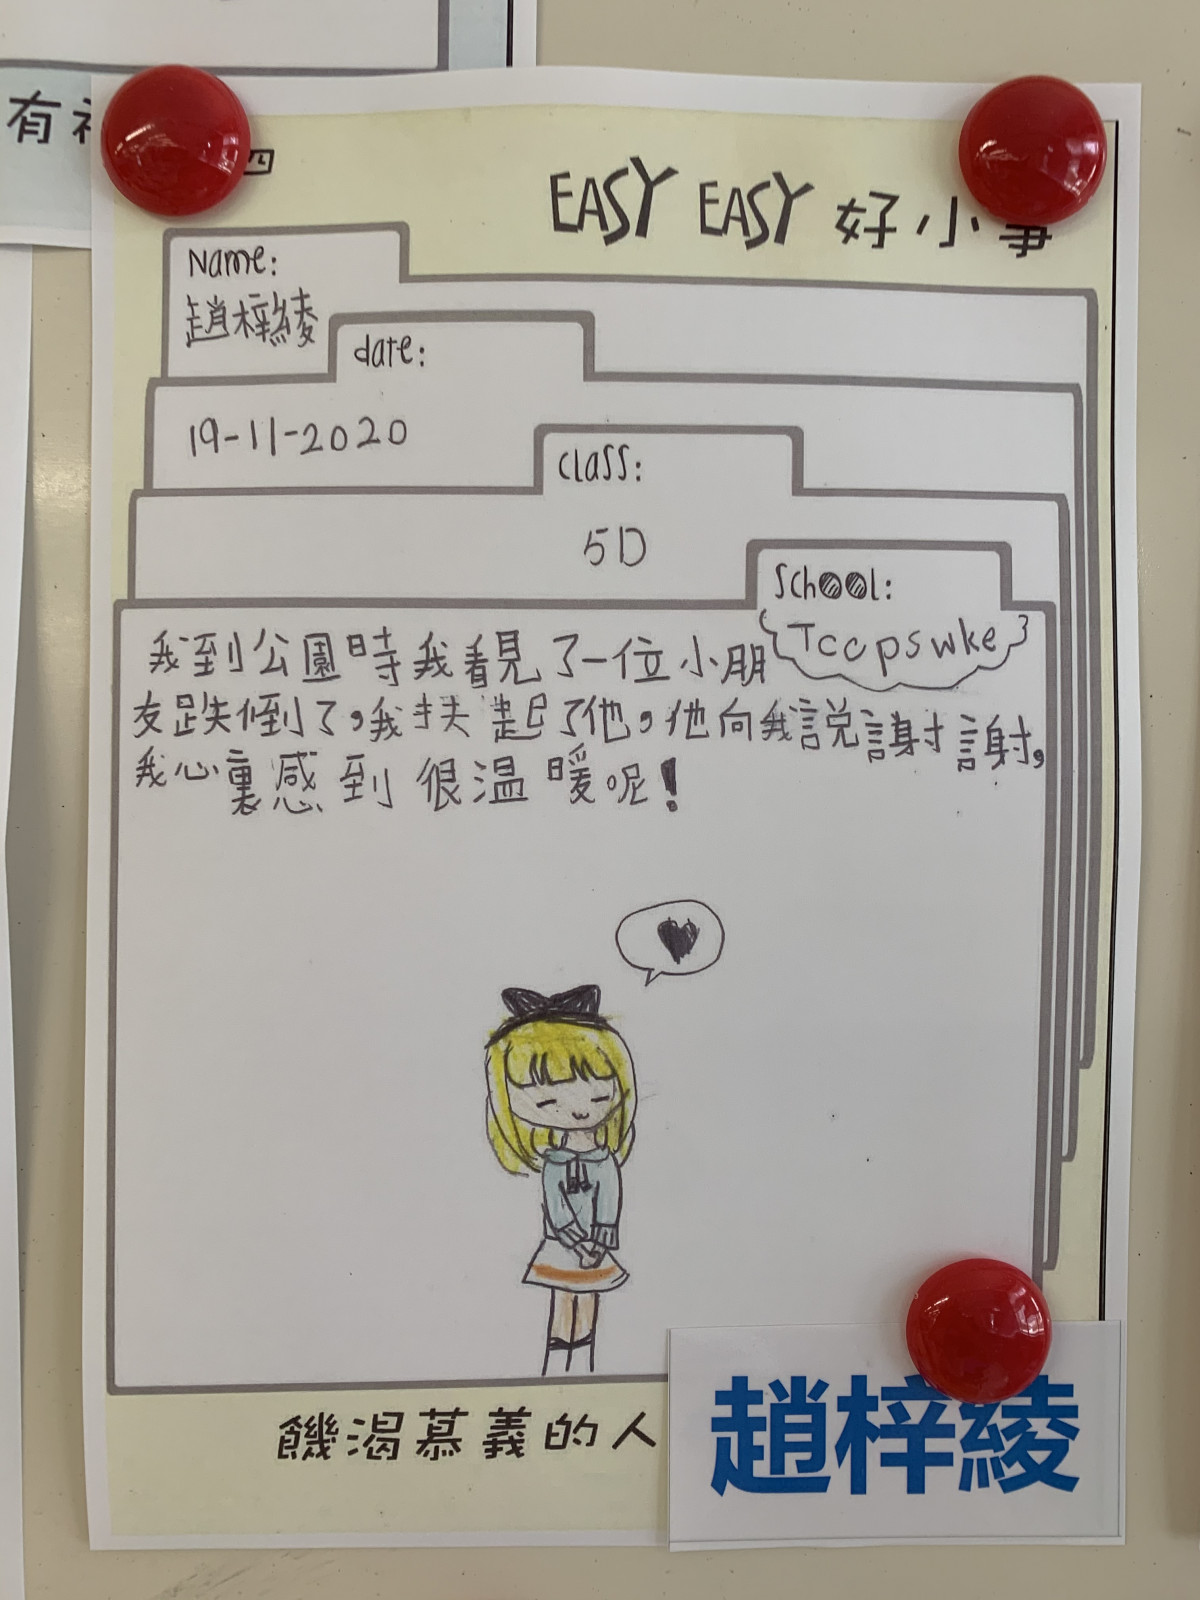 有
四
EASY EASY 好小事
Name:
趙梓綾
date:
19-11-2020
class:
5D
School:
Tccpswke
我到公園時我看見了一位小朋
友跌倒了,我扶起了他,他向我説謝謝,
我心裏感到很温暖呢!
饑渴慕義的人
趙梓綾